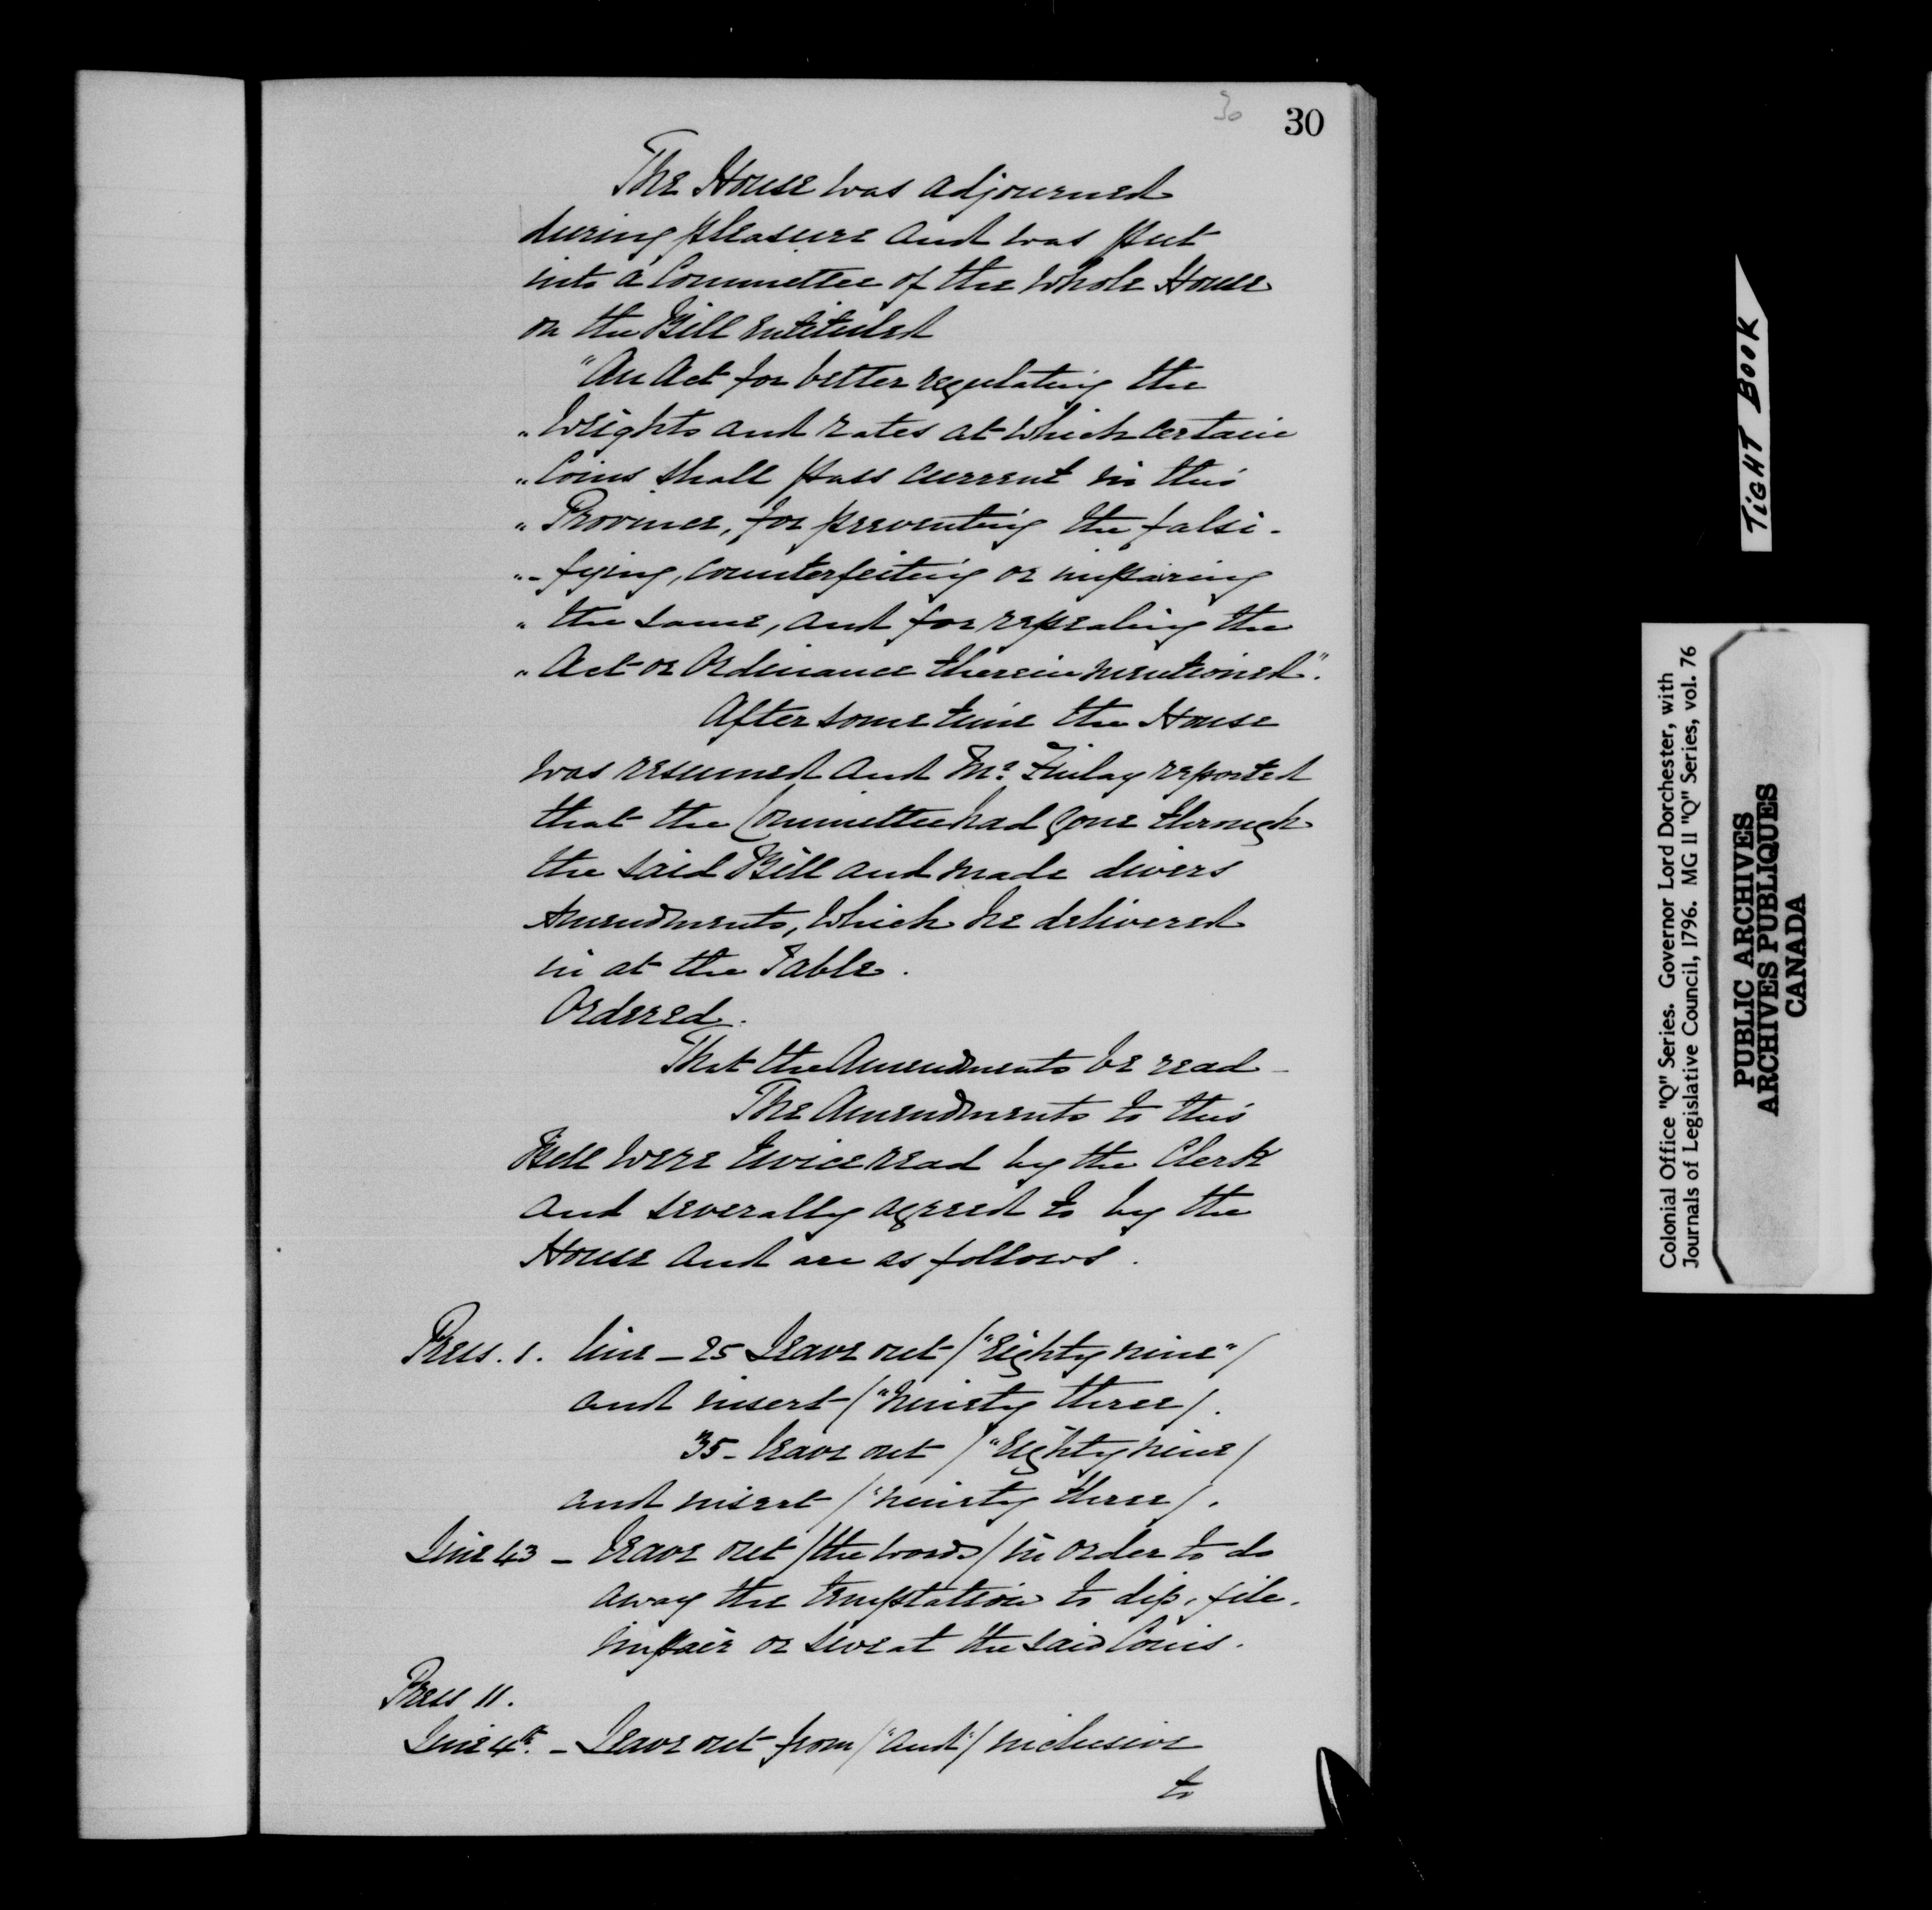 30
30
The House was adjourned
during pleasure and was put
into a Committee of the whole House
on the Bill entituled
"An Act for better regulating the
"Weights and rates at which certain
"Coins shall pass current in this
"Province, for preventing the falsi-
"-fying, counterfeiting or impairing
"the same, and for repealing the
"Act or Ordinance therein mentioned".
After some time the House
was resumed and Mr. Finlay reported
that the Committee had gone through
the said Bill and made divers
Amendments, which he delivered
in at the Table.
Ordered.
That the Amendments be read -
The Amendments to this
Bill were twice read by the Clerk
and severally agreed to by the
House and are as follows.
Press. 1. line - 25 Leave out /"Eighty nine"/
and insert /"Ninety three/.
"35 - leave out /"Eighty nine/
and insert /"ninety three/.
Line 43 - leave out /the words/ in order to do
away the temptation to clip, file,
impair or sweat the said Coins.
Press 11.
Line 4th. - Leave out from /"and"/ inclusive
to
TIGHT BOOK
Colonial Office "Q" Series. Governor Lord Dorchester, with
Journals of Legislative Council, 1796. MG 11 "Q" Series, vol. 76
PUBLIC ARCHIVES
ARCHIVES PUBLIQUES
CANADA